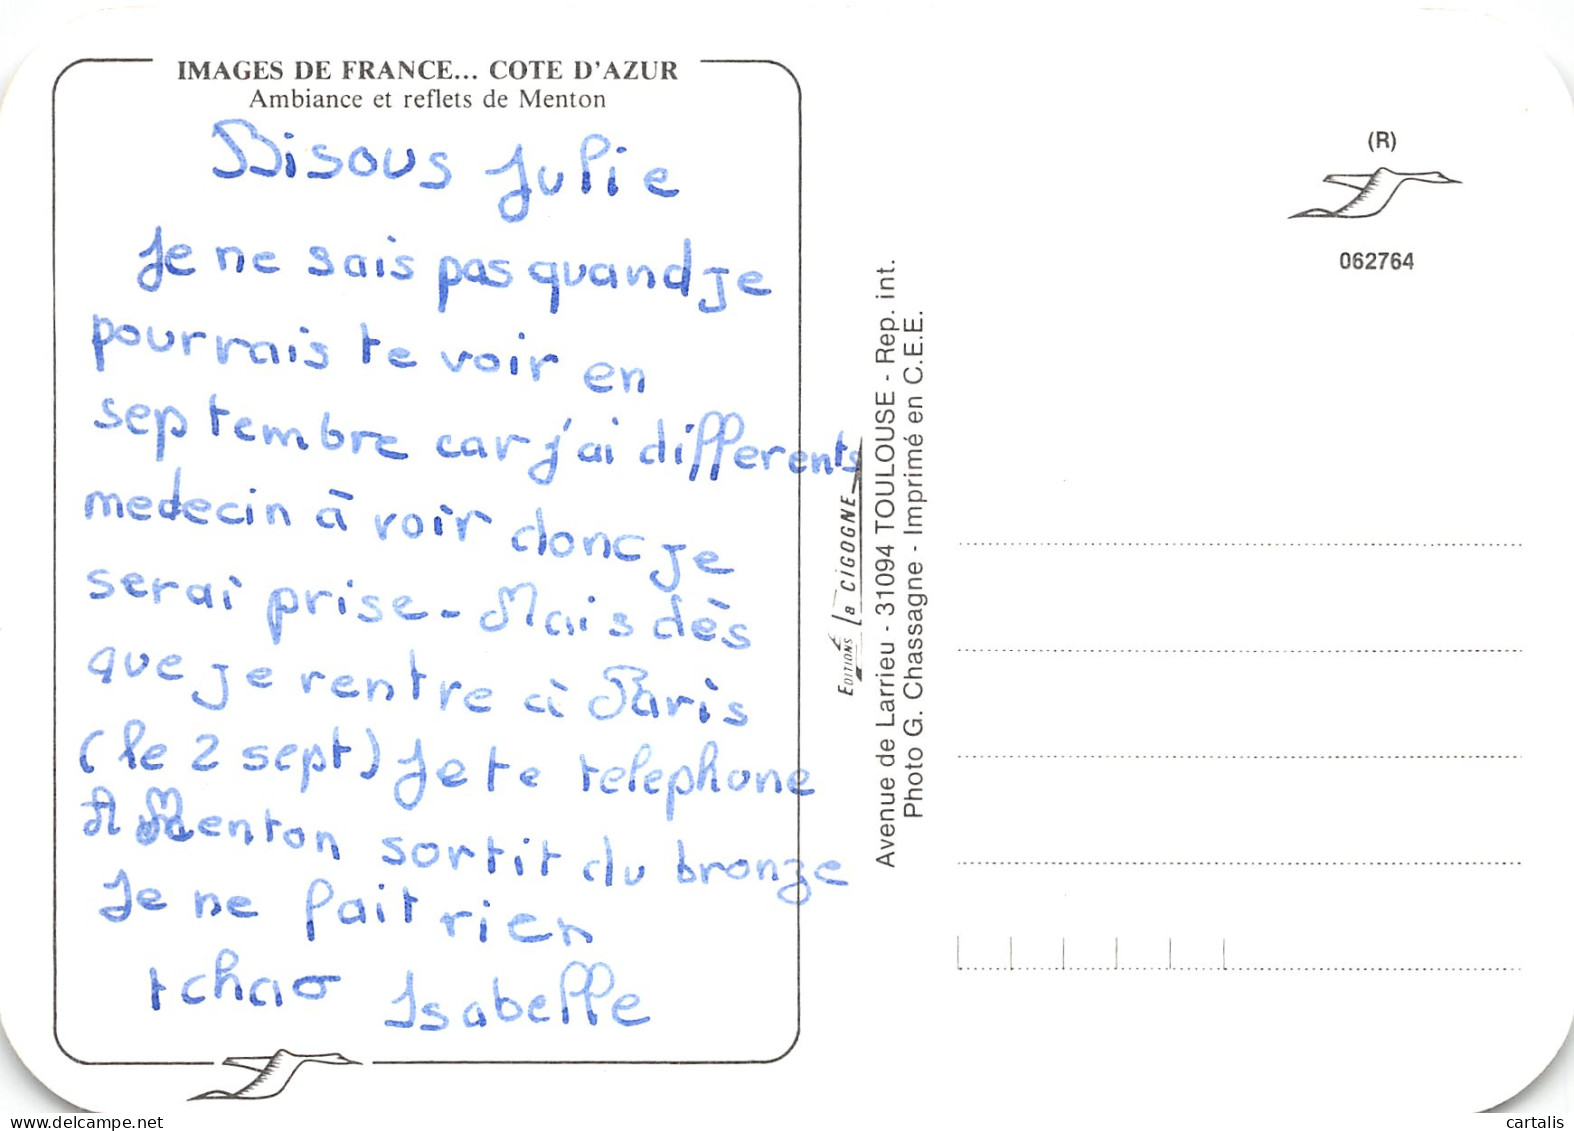 IMAGES DE FRANCE... COTE D'AZUR
Ambiance et reflets de Menton
Bisous Julie
Je ne sais pas quand je
pourrais te voir en
septembre car j'ai differents
medecin à voir donc je
serai prise - Mais dès
que je rentre à Paris
(le 2 sept) Je te telephone
A Menton sortit du bronze
Je ne fait rien
tchao Isabelle
EDITIONS La CIGOGNE
Avenue de Larrieu - 31094 TOULOUSE - Rep. int.
Photo G. Chassagne - Imprimé en C.E.E.
(R)
062764
www.delcampe.net
cartalis